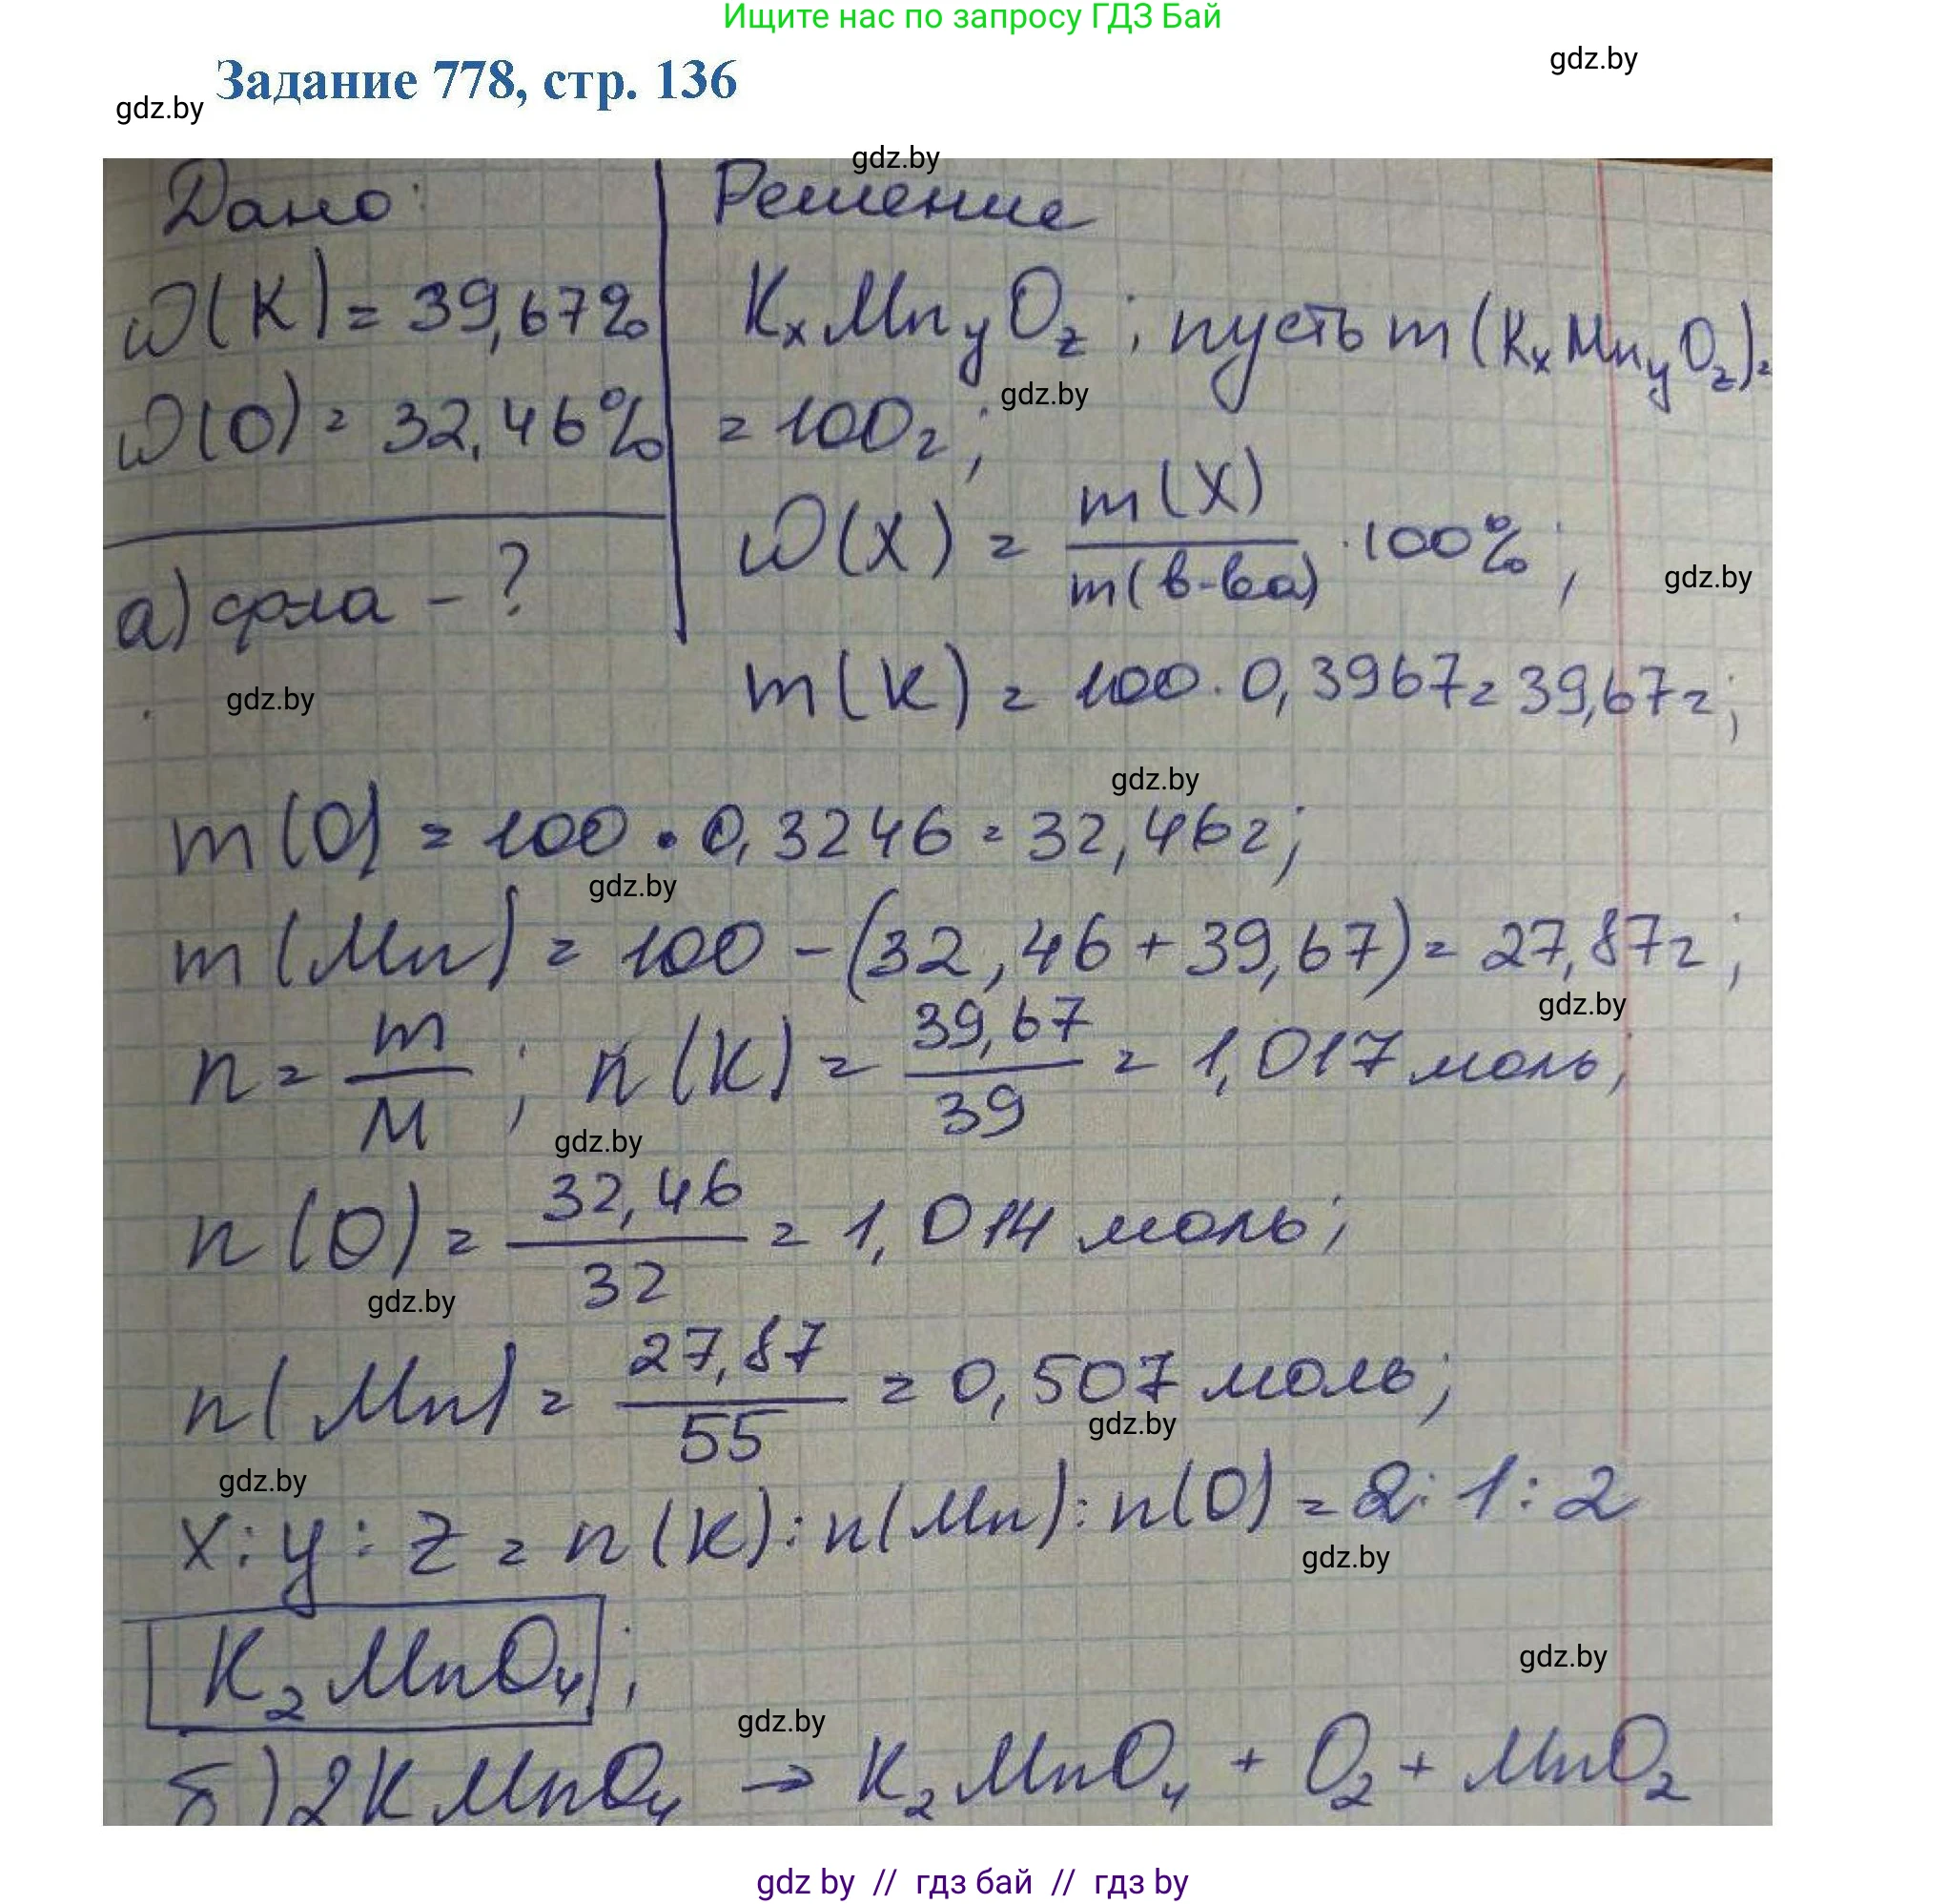 Ищите нас по запросу ГДЗ Бай
gdz.by
Задание 778, стр. 136
gdz.by
gdz.by
Дано: Решение
ω(K) = 39,67% KxMnyOz ; пусть m (KxMnyOz) =
gdz.by
ω(O) = 32,46% = 100г ;
ω(X) = m(X) / m(в-ва) · 100% ;
gdz.by
а) фла - ?
m(K) = 100 · 0,3967 = 39,67г ;
gdz.by
gdz.by
m(O) = 100 · 0,3246 = 32,46г ;
gdz.by
m(Mn) = 100 - (32,46 + 39,67) = 27,87г ;
gdz.by
n = m / M ; n(K) = 39,67 / 39 = 1,017 моль ;
gdz.by
n(O) = 32,46 / 32 = 1,014 моль ;
gdz.by
n(Mn) = 27,87 / 55 = 0,507 моль ;
gdz.by
gdz.by
x : y : z = n(K) : n(Mn) : n(O) = 2 : 1 : 2
gdz.by
K₂MnO₄ ;
gdz.by
gdz.by
б) 2KMnO₄ → K₂MnO₄ + O₂ + MnO₂
gdz by // гдз бай // гдз by